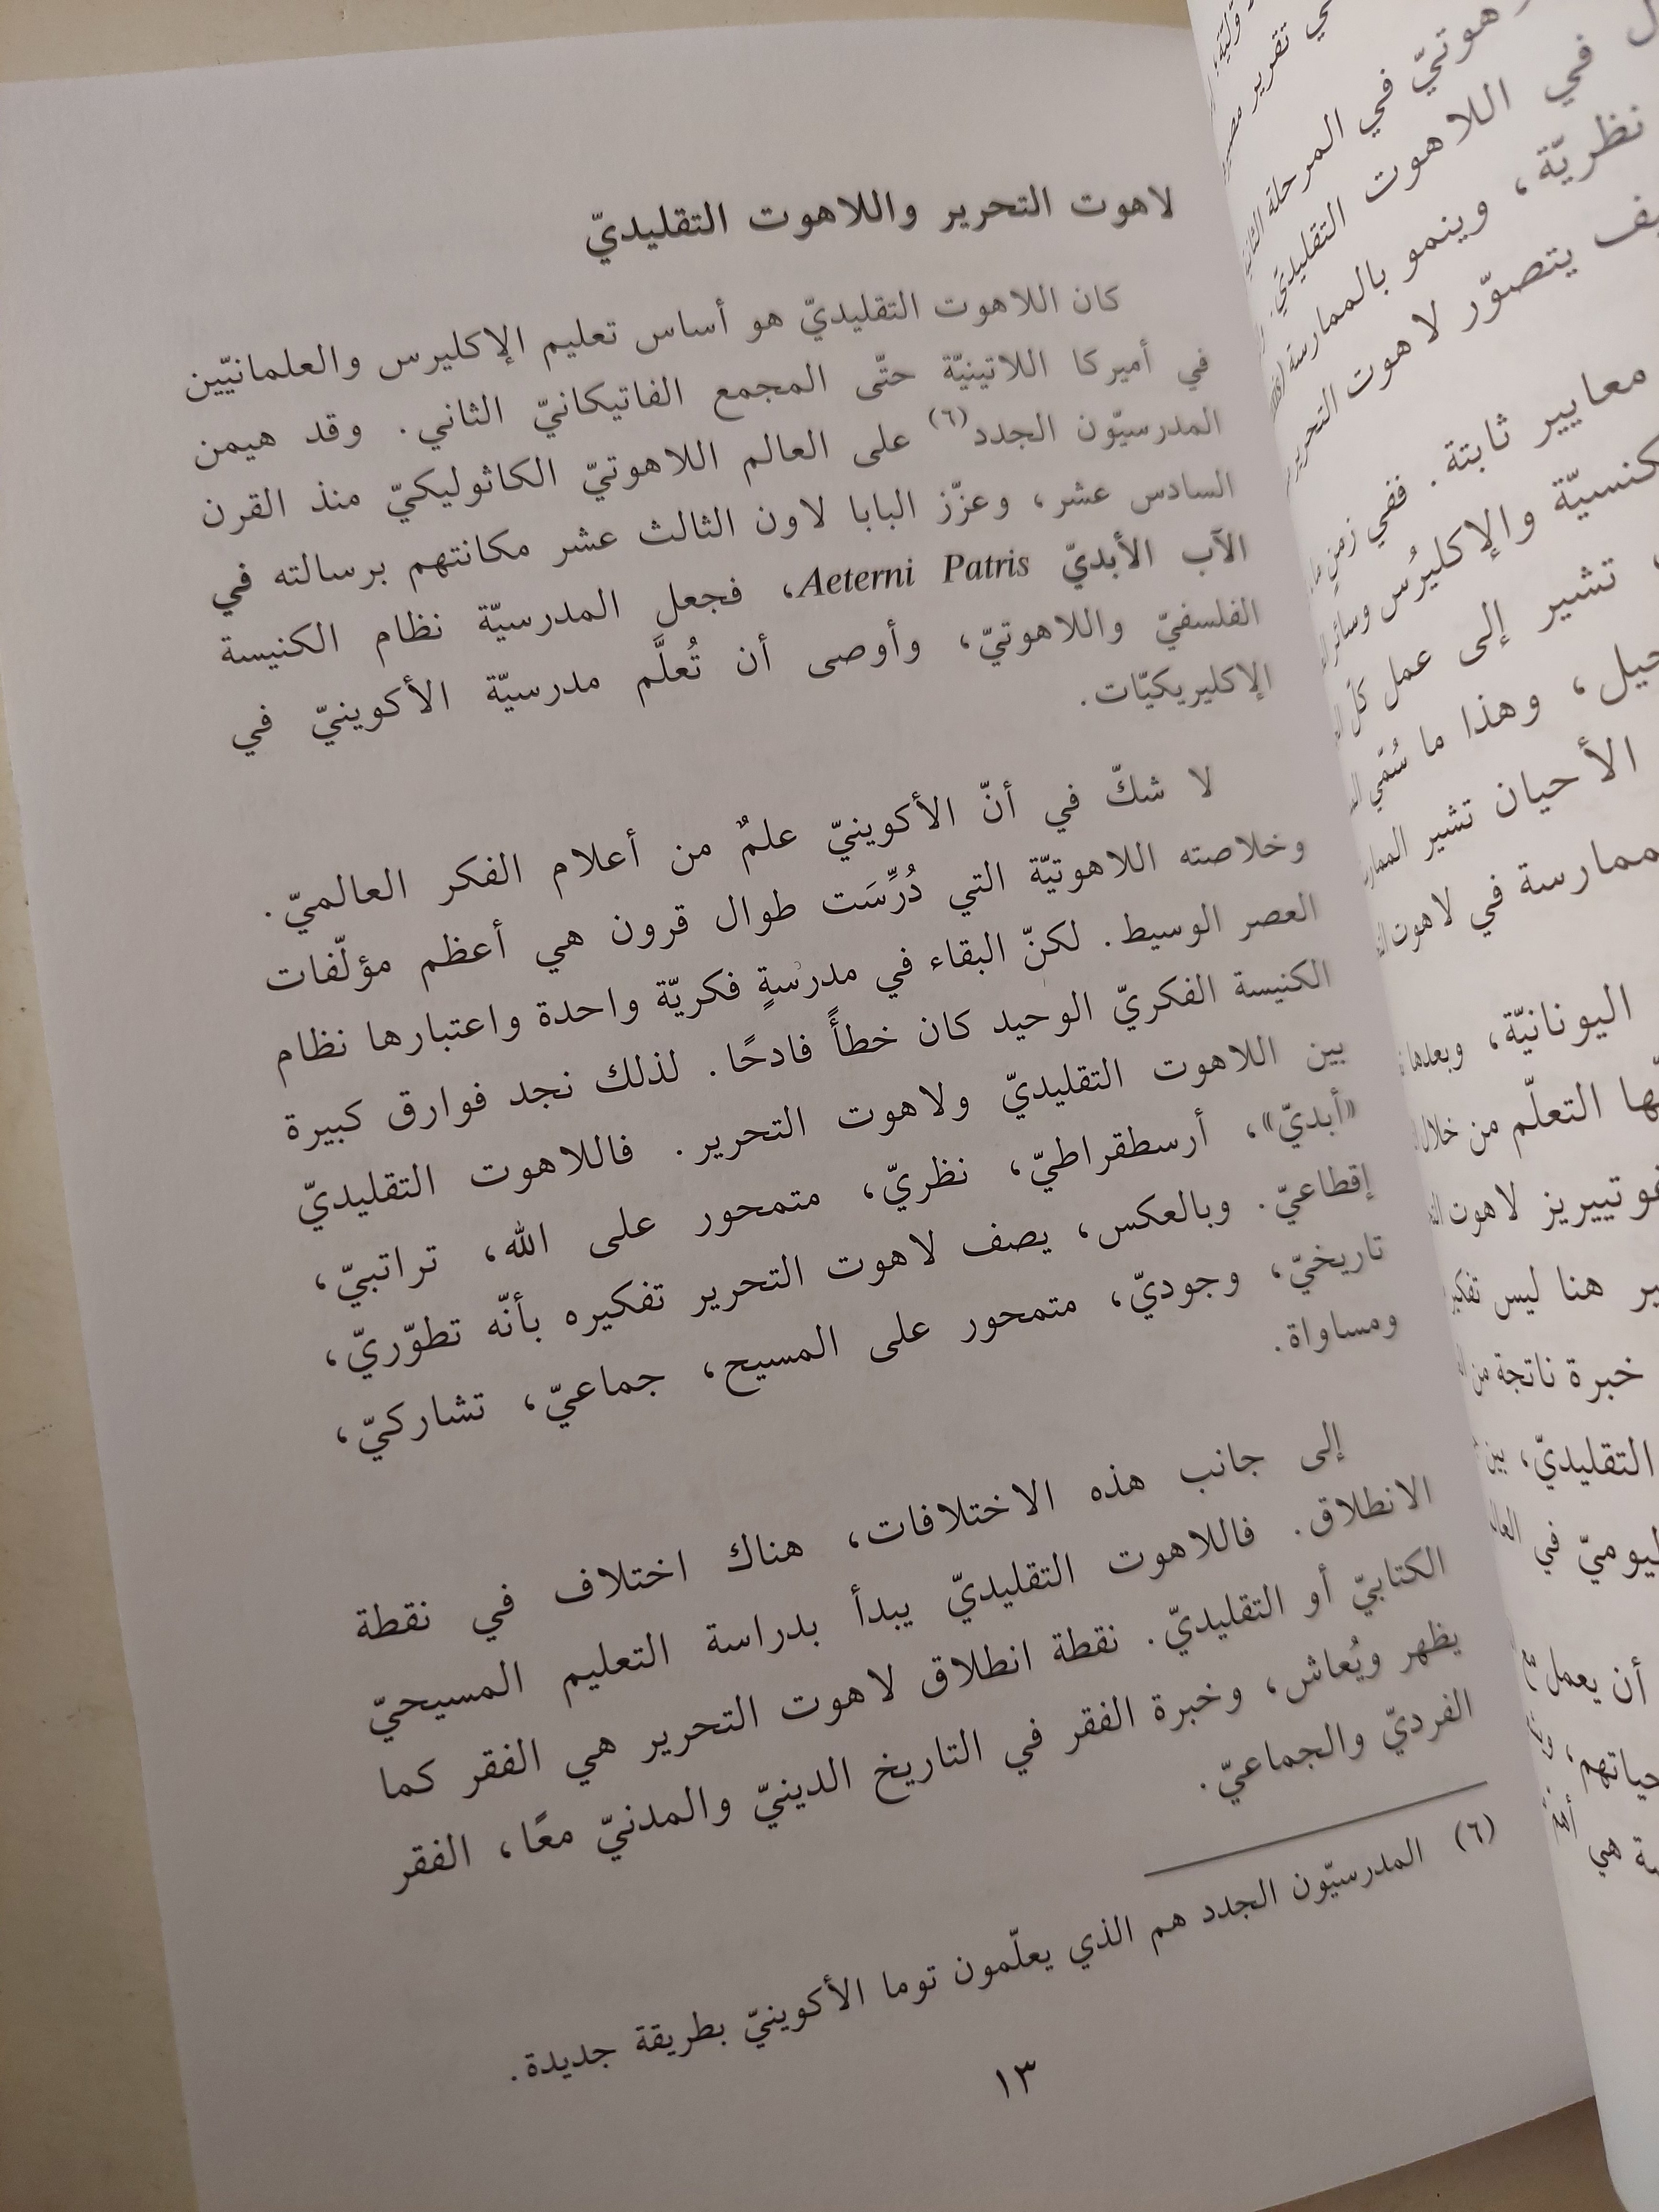 لاهوت التحرير واللاهوت التقليديّ
كان اللاهوت التقليديّ هو أساس تعليم الإكليرس والعلمانيّين
في أميركا اللاتينيّة حتّى المجمع الفاتيكانيّ الثاني. وقد هيمن
المدرسيّون الجدد(٦) على العالم اللاهوتيّ الكاثوليكيّ منذ القرن
السادس عشر، وعزّز البابا لاون الثالث عشر مكانتهم برسالته في
الآب الأبديّ Aeterni Patris، فجعل المدرسيّة نظام الكنيسة
الفلسفيّ واللاهوتيّ، وأوصى أن تُعلَّم مدرسيّة الأكوينيّ في
الإكليريكيّات.
لا شكّ في أنّ الأكوينيّ علمٌ من أعلام الفكر العالميّ.
وخلاصته اللاهوتيّة التي دُرِّسَت طوال قرون هي أعظم مؤلّفات
العصر الوسيط. لكنّ البقاء في مدرسةٍ فكريّة واحدة واعتبارها نظام
الكنيسة الفكريّ الوحيد كان خطأً فادحًا. لذلك نجد فوارق كبيرة
بين اللاهوت التقليديّ ولاهوت التحرير. فاللاهوت التقليديّ
«أبديّ»، أرسطقراطيّ، نظريّ، متمحور على الله، تراتبيّ،
إقطاعيّ. وبالعكس، يصف لاهوت التحرير تفكيره بأنّه تطوّريّ،
تاريخيّ، وجوديّ، متمحور على المسيح، جماعيّ، تشاركيّ،
ومساواة.
إلى جانب هذه الاختلافات، هناك اختلاف في نقطة
الانطلاق. فاللاهوت التقليديّ يبدأ بدراسة التعليم المسيحيّ
الكتابيّ أو التقليديّ. نقطة انطلاق لاهوت التحرير هي الفقر كما
يظهر ويُعاش، وخبرة الفقر في التاريخ الدينيّ والمدنيّ معًا، الفقر
الفرديّ والجماعيّ.
(٦) المدرسيّون الجدد هم الذي يعلّمون توما الأكوينيّ بطريقة جديدة.
١٣
في تقرير
في المرحلة
في اللاهوت التقليديّ.
نظريّة، وينمو بالممارسة
يتصوّر لاهوت التحرير
معايير ثابتة. ففي زمنٍ
والإكليرُس وسائر
تشير إلى عمل كلّ
وهذا ما سُمّي
الأحيان تشير
في لاهوت
اليونانيّة، وبعدها
التعلّم من خلال
لاهوت
هنا ليس
خبرة ناتجة من
التقليديّ، بين
في
أن يعمل
حياتهم،
هي